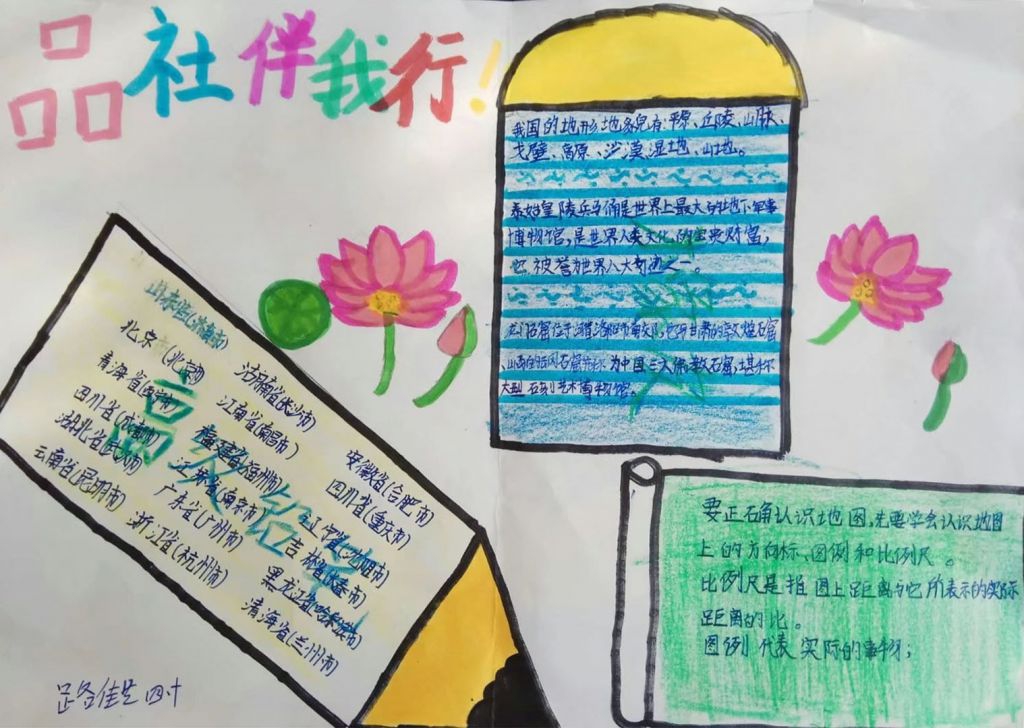 品社伴我行!
我国的地形地貌有平原、丘陵、山脉、
戈壁、高原、沙漠、湿地、山地。
秦始皇陵兵马俑是世界上最大的地下军事
博物馆,是世界人类文化的宝贵财富,
它被誉为世界八大奇迹之一。
龙门石窟位于河南洛阳市南交区,它与甘肃的敦煌石窟
、山西的云冈石窟并称为中国三大佛教石窟,堪称
大型石刻艺术博物馆。
北京(北京市)
青海省(西宁市)
四川省(成都市)
湖北省(武汉市)
云南省(昆明市)
湖南省(长沙市)
江南省(南昌市)
福建省(福州市)
江苏省(南京市)
广东省(广州市)
浙江省(杭州市)
安徽省(合肥市)
四川省(重庆市)
辽宁省(沈阳市)
吉林省(长春市)
黑龙江省(哈尔滨市)
青海省(兰州市)
要正确认识地图,先要学会认识地图
上的方向标、图例和比例尺。
比例尺是指图上距离与它所表示的实际
距离的比。
图例代表实际的事物;
路佳艺 四十